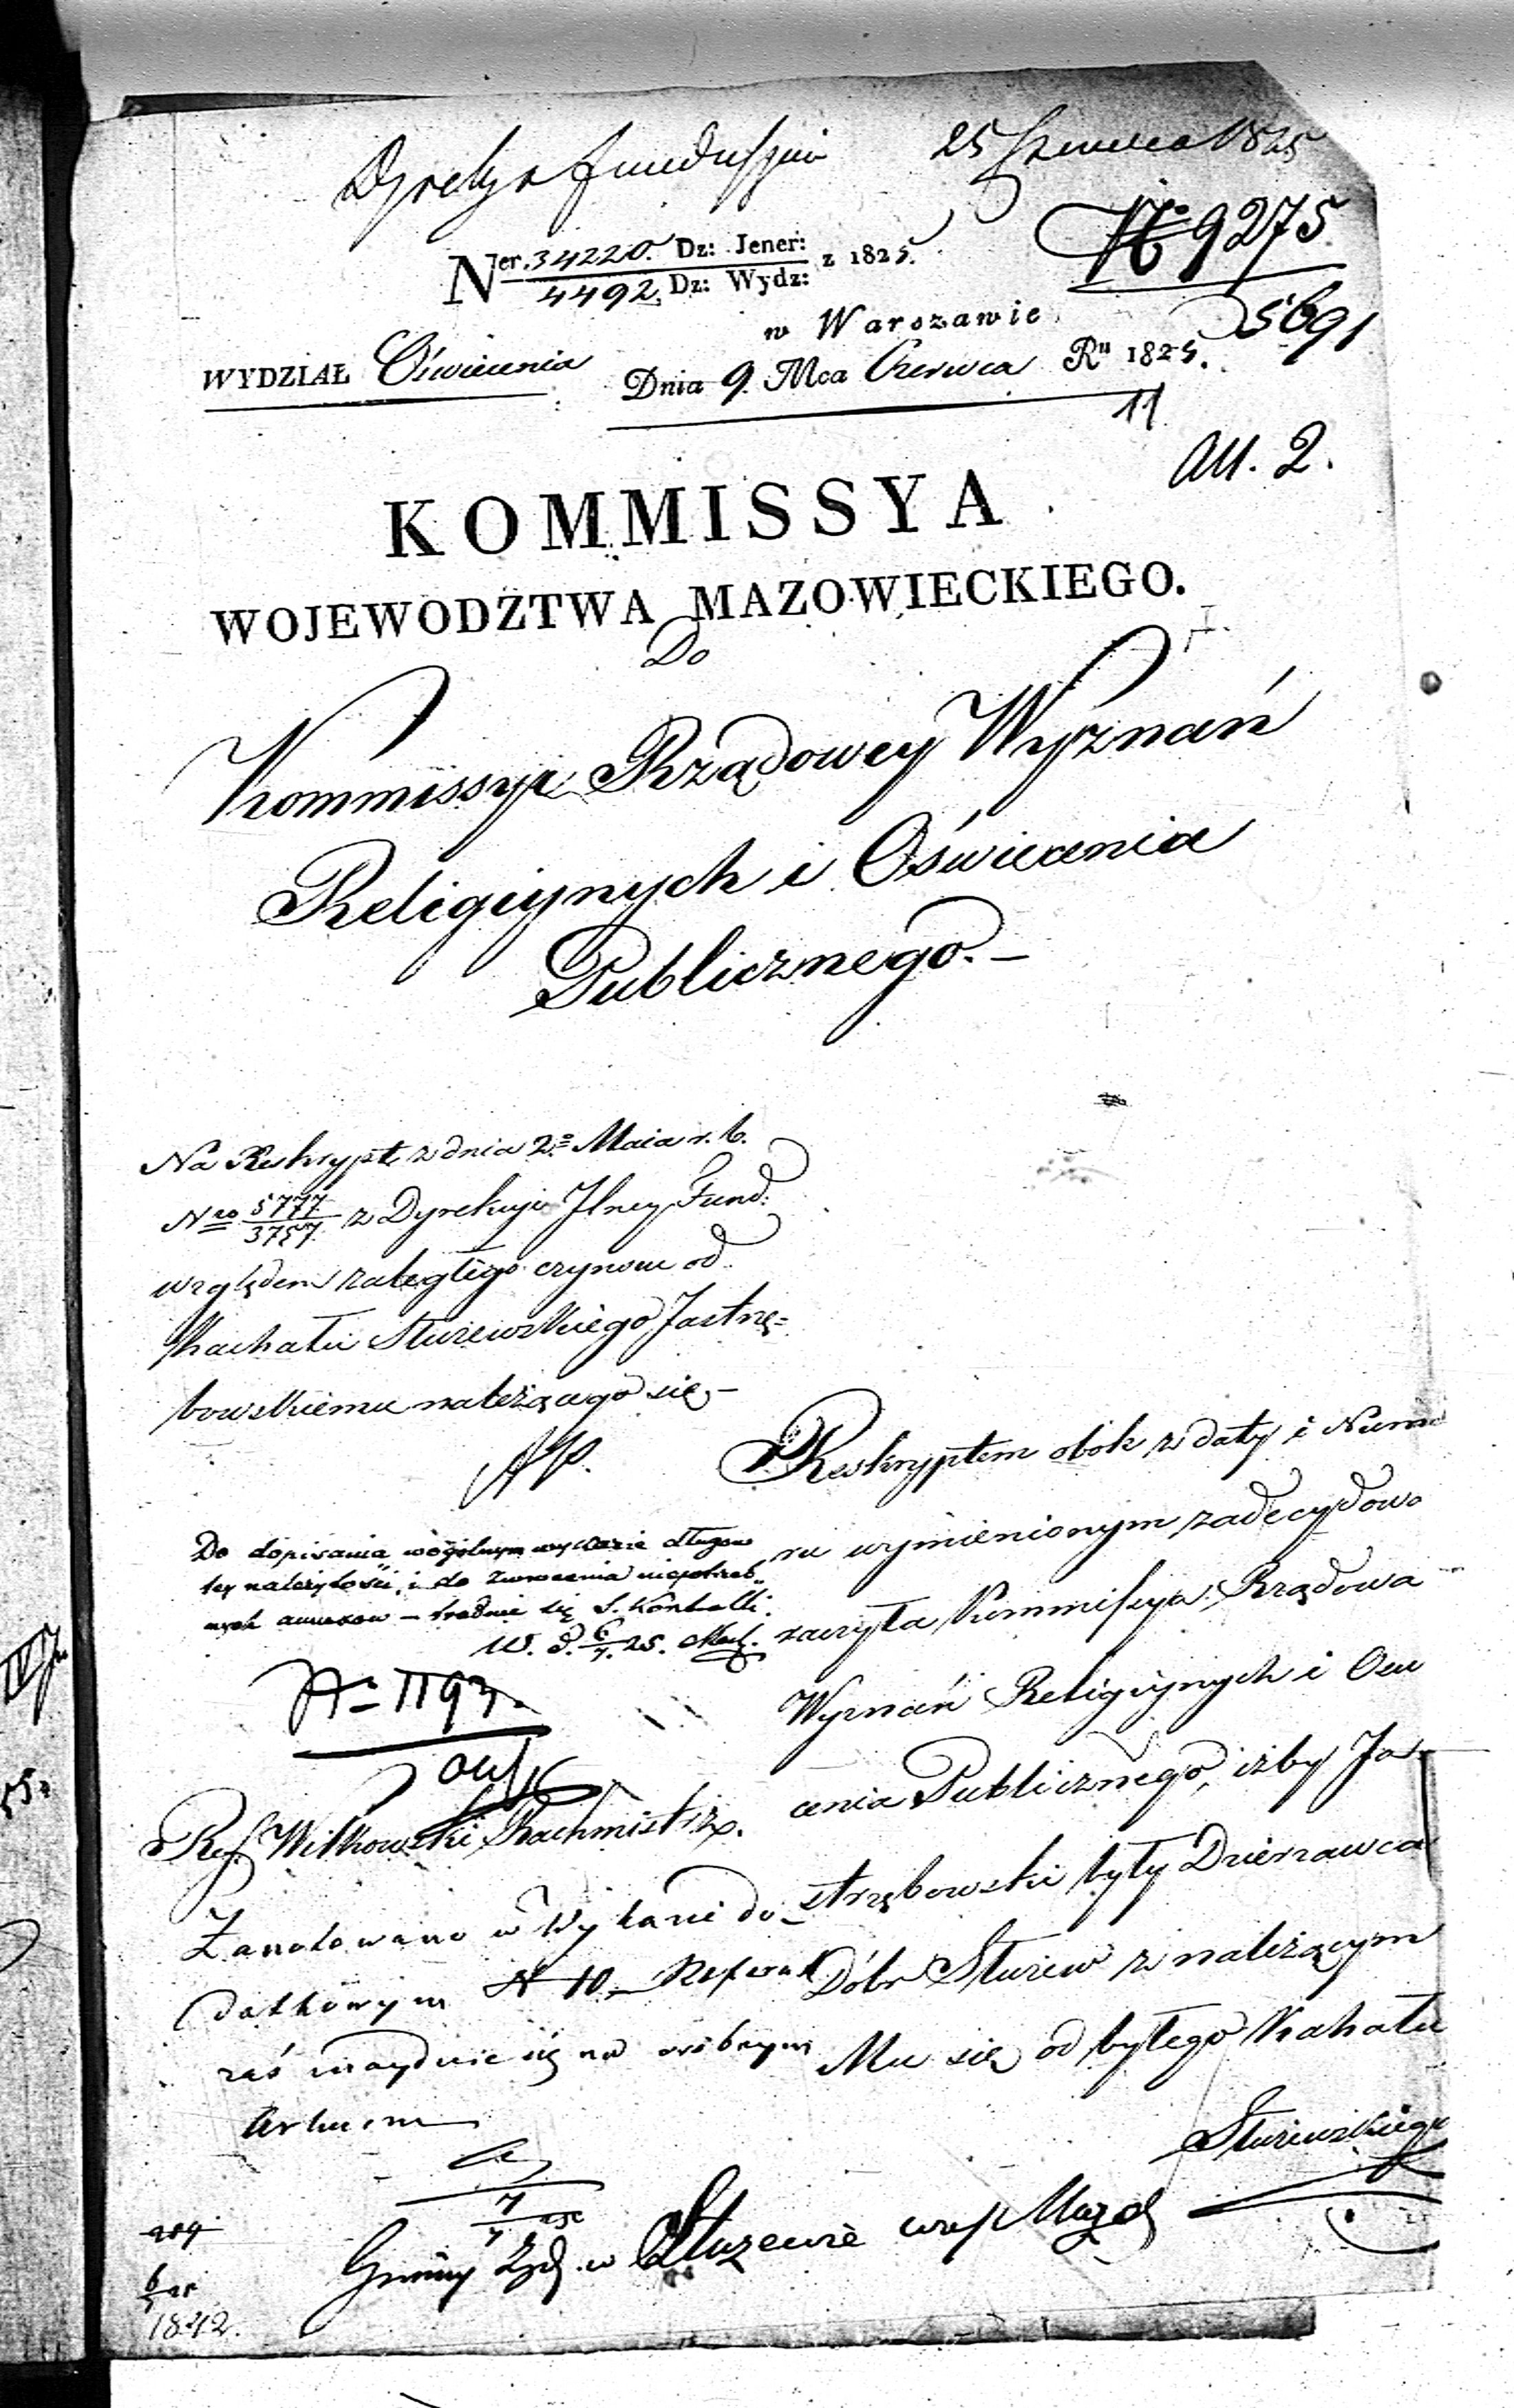 Dyrekcya Funduszów
25 Czerwca 1825
№ 9275
5691
Ner. 34220. Dz: Jener: z 1825.
4492. Dz: Wydz:
w Warszawie
WYDZIAŁ Oświecenia
Dnia 9. Mca Czerwca Ru 1825.
11
All. 2.
KOMMISSYA
WOJEWODZTWA MAZOWIECKIEGO.
Do
Kommissyi Rządowey Wyznań
Religiynych i Oświecenia
Publicznego.-
Na Reskrypt z dnia 2.o Maia r. b.
Nro 5777/3757 z Dyrekcyi Jlney Fund:
względem zaległego czynszu od
Kachału Służewskiego Jastrzę=
bowskiemu należącego się,-
Reskryptem obok z daty i Nume
ru wymienionym zadecydowa
czyła Kommissya Rządowa
Wyznań Religiynych i Oświe
cenia Publicznego, iżby Ja-
strzębowski były Dzierzawca
Dóbr Służew z należącym
Mu się od byłego Kahału
Służewskiego
Do dopisania wogólnym wykazie długów
tey należytości, i do zwrócenia niepotrzeb
nych annexow - trudnić się S. Kontrolli.
W. d. 6/7. 25.
№ 1193.
Ref. Witkowski Rachmistrz.
Zanotowano w Wykazie do-
datkowym N 10 - Referat
zaś znayduie się na osobnym
Arkuszu
7/7 25
Gminy Żyd. w Służewie woj. Maz.
289
6/7 25
1842.